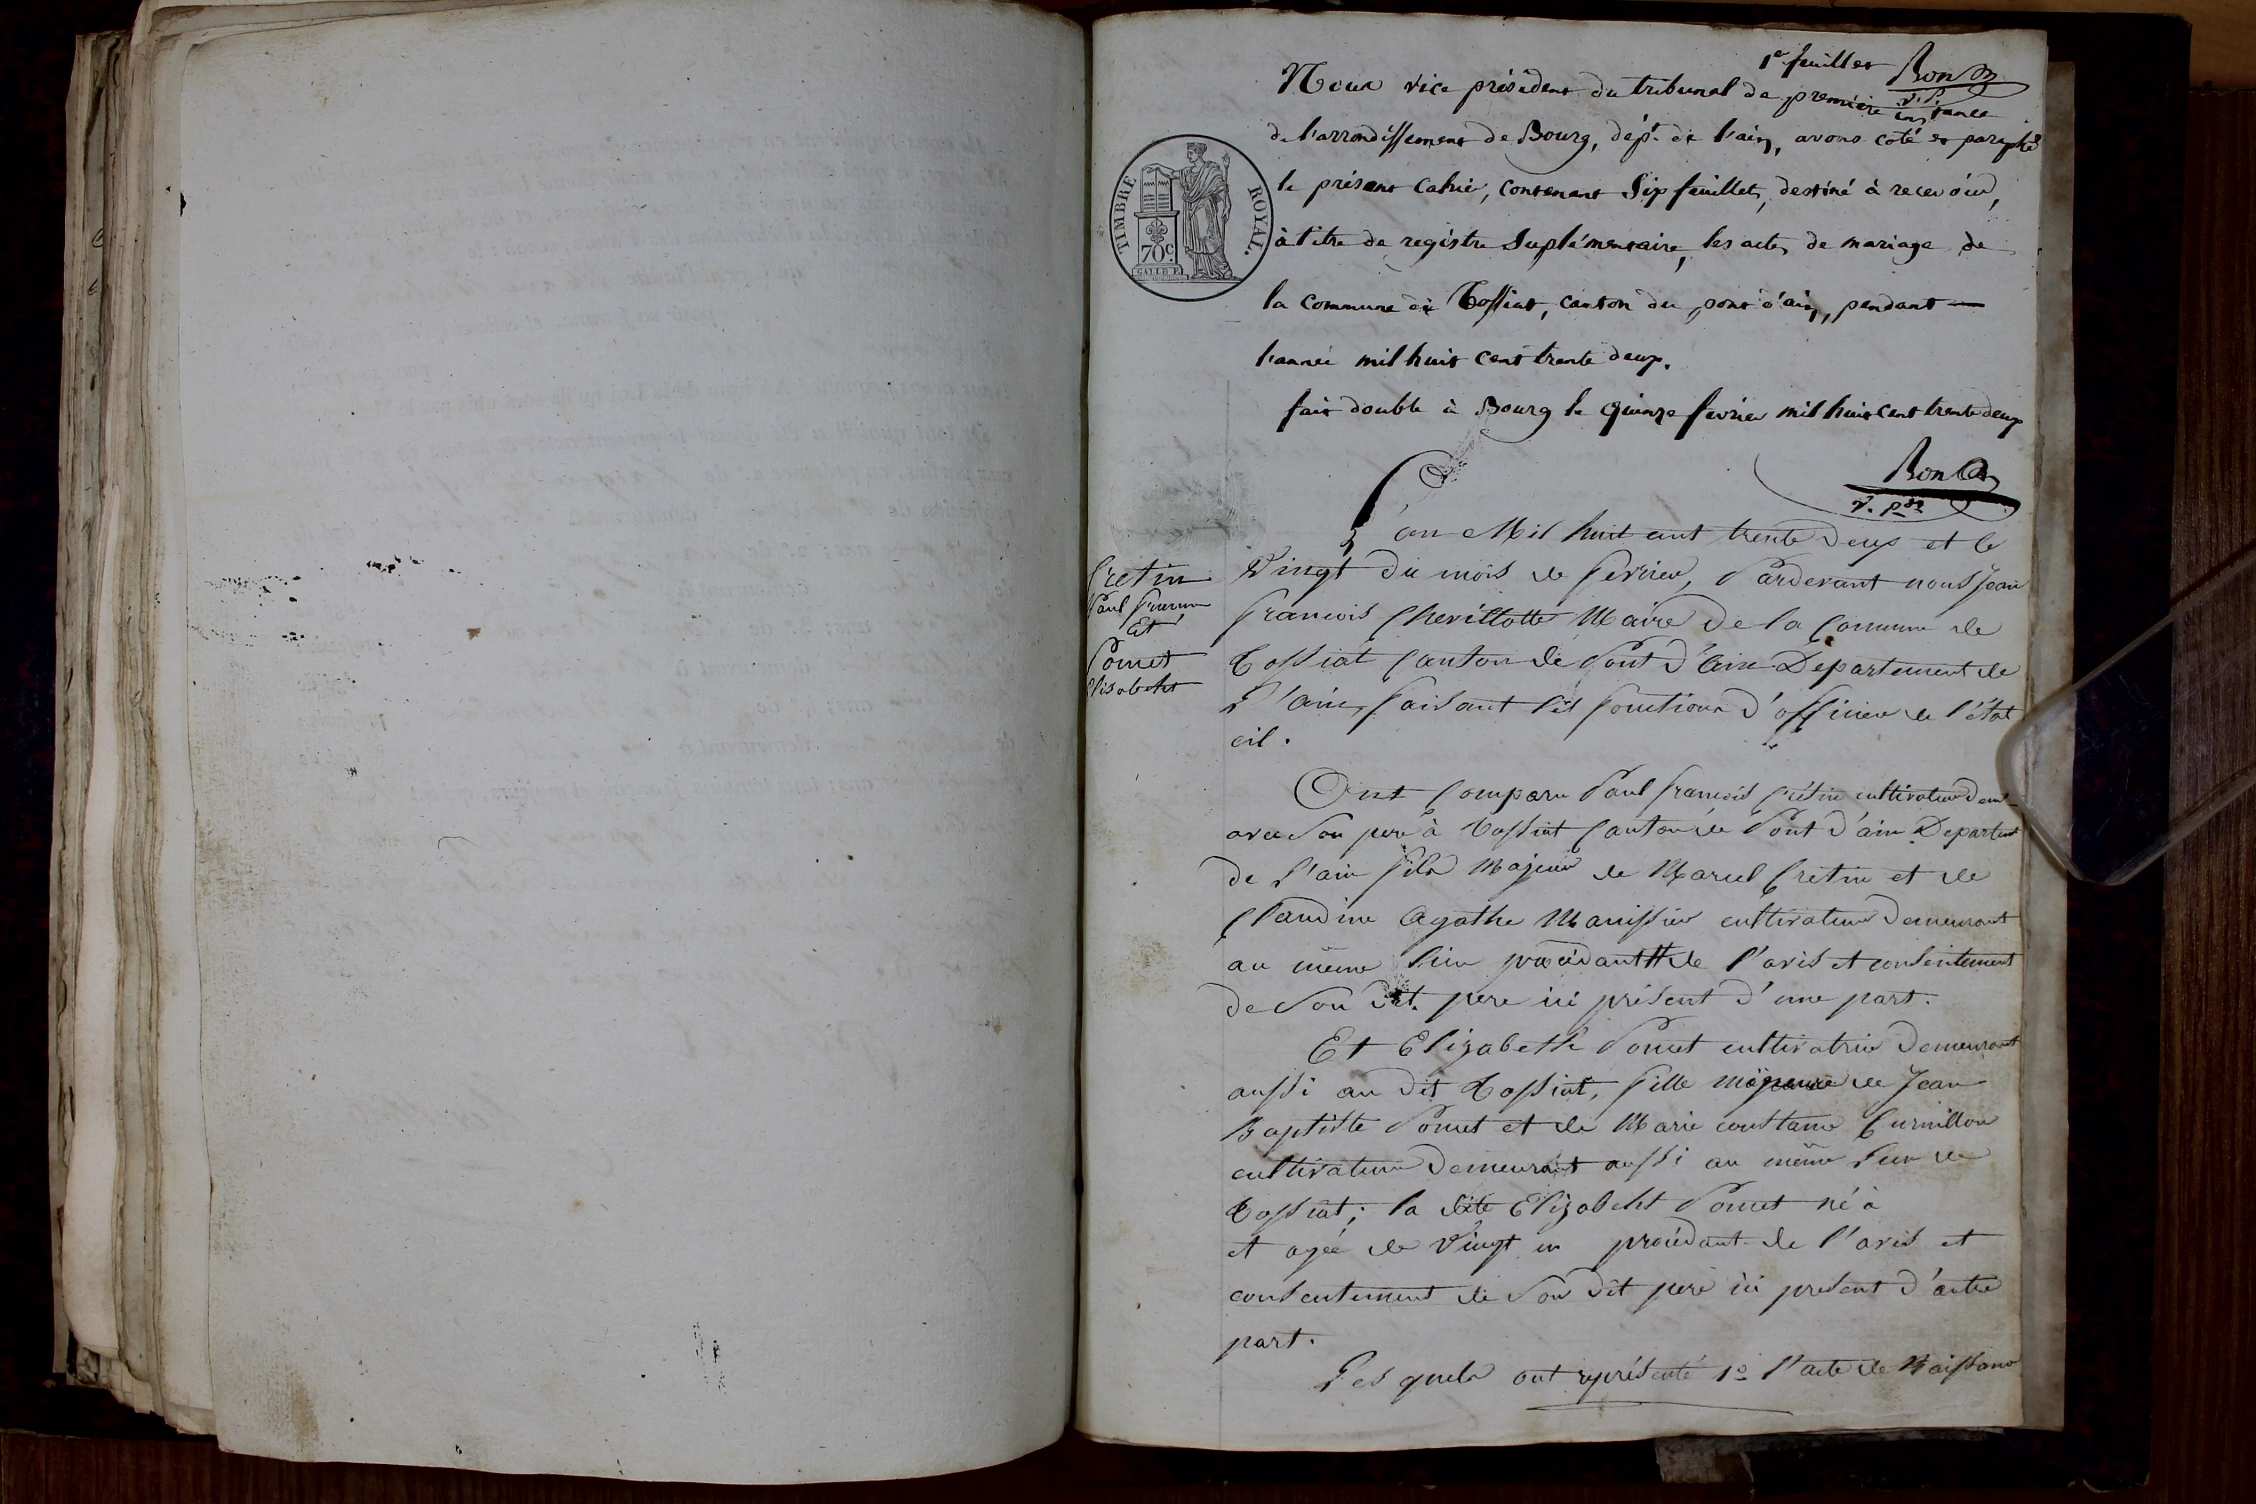 1er feuillet Bon
v. p.
Nous vice président du tribunal de première instance
de l'arrondissement de Bourg, dépt. de l'ain, avons coté et paraphé
le présent cahier, contenant Six feuillets, destiné à recevoir,
à titre de registre Suplémentaire, les actes de mariage de
la commune de Tossiat, canton du pont d'ain, pendant —
l'année mil huit cent trente deux.
fait double à Bourg le quinze fevrier mil huit cent trente deux
TIMBRE ROYAL.
70c.
Bon
v. pdt
L'an Mil huit cent trente deux et le
Vingt du mois de fevrier, Pardevant nous Jean
francois Chevillotte Maire De la Commune de
Tossiat Canton de Pont D'ain Departement de
L'ain, faisant les fonctions d'officier de l'état
cil.
Cretin
Paul
Et
Pomet
Elisabeht
Ont Comparu Paul francois Crétin cultivateur demt
avec Son pere à Tossiat Canton de Pont D'ain Departent
de L'ain fils Majeur de Marcel Cretin et de
Claudine Agathe Manissier cultivateur Demeurant
au même lieu procédant de l'avis et consentement
de Son dit pere ici présent D'une part.
Et Elizabeth Pomet cultivatrice Demeurant
aussi au Dit Tossiat, fille majeure de Jean
Baptiste Pomet et de Marie constance Curnillon
cultivateur Demeurant aussi au même Lieu de
Tossiat; la dite Elizabeht Pomet né à
et agée de Vingt un procédant de l'avis et
consentement de Son Dit pere ici present d'autre
part.
Les quels ont représenté 1o L'acte de Naissance